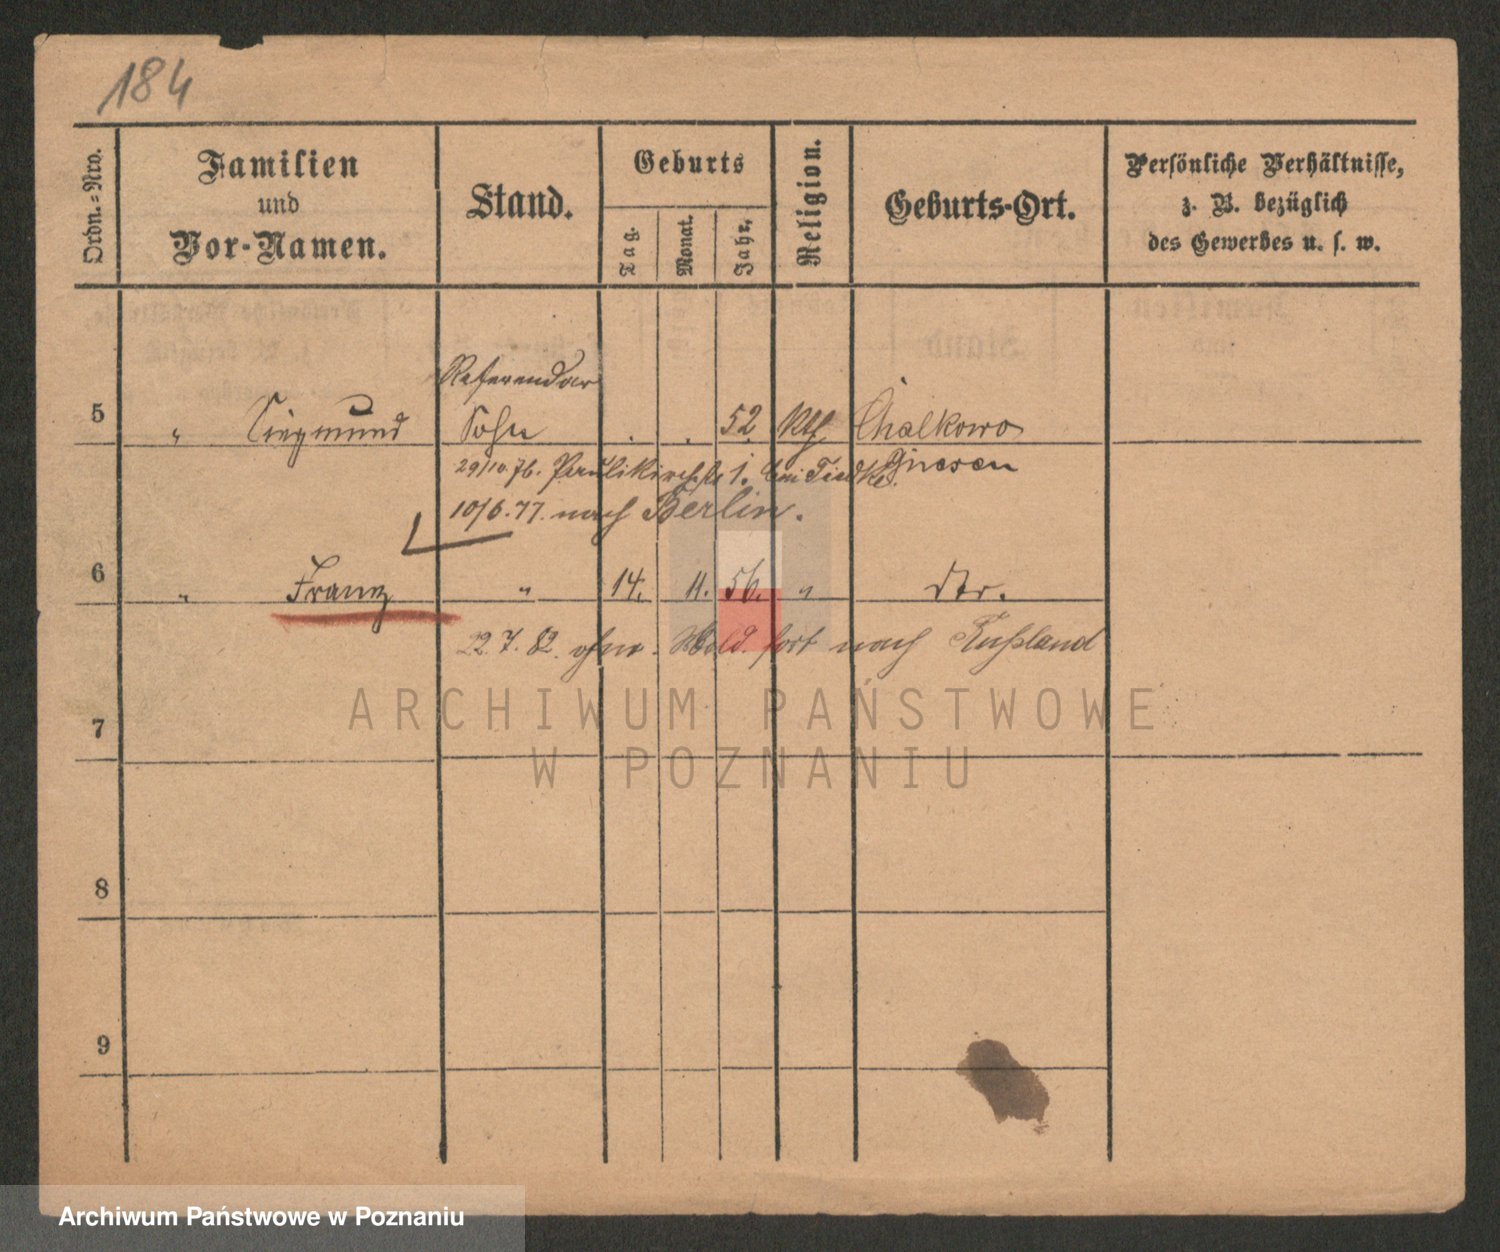 184
Ordn.-Nro.
Familien
und
Vor-Namen.
Stand.
Geburts
Tag.
Monat.
Jahr.
Religion.
Geburts-Ort.
Persönliche Verhältnisse,
z. B. bezüglich
des Gewerbes u. s. w.
Referendar
5 " Siegmund Sohn . . 52. Kth. Chalkowo
29/10.76. Paulikirchstr 1. bei Tiedke. Gnesen
10/6.77. nach Berlin.
6 " Franz " 14. 11. 56. " dto.
22.7.82. ohne Meld. fort nach Rußland
ARCHIWUM PAŃSTWOWE
W POZNANIU
7
8
9
Archiwum Państwowe w Poznaniu